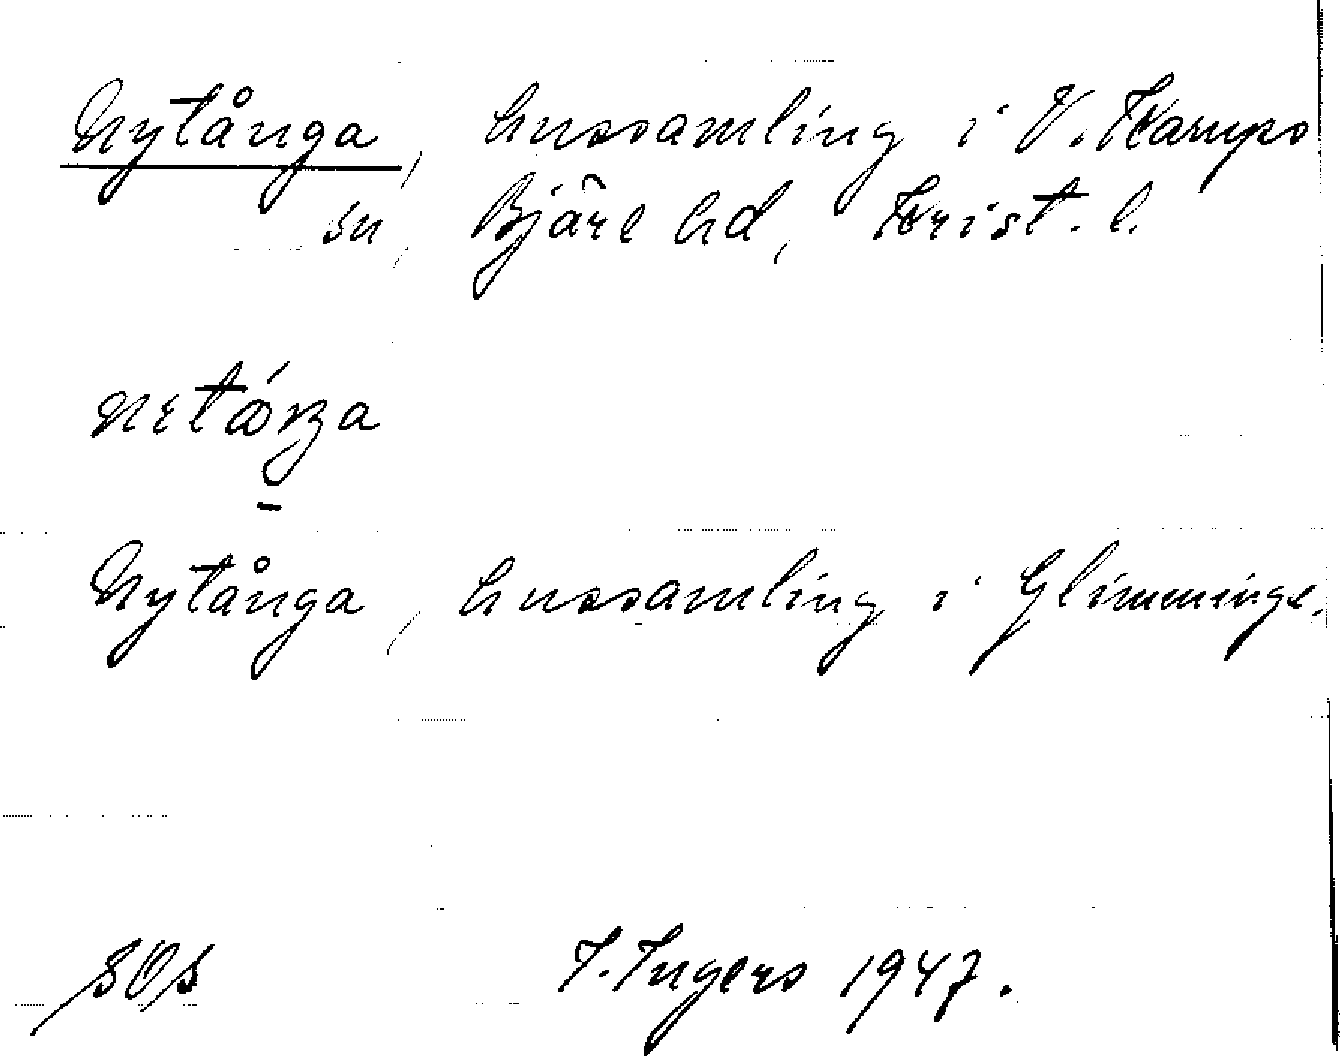 Nytånga, hussamling i V. Karups
sn, Bjäre hd, Krist. l.
Nytånga, hussamling i Glimminge.
I. Ingers 1947.